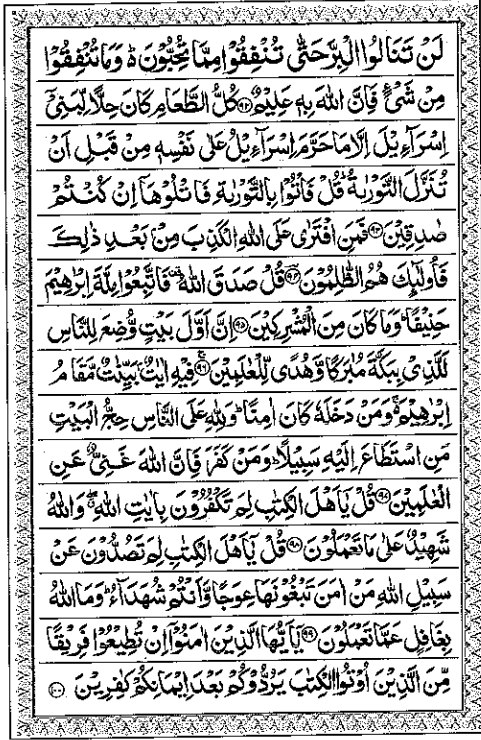 لَنْ تَنَالُوا الْبِرَّ حَتّٰى تُنْفِقُوْا مِمَّا تُحِبُّوْنَ ؕ وَمَا تُنْفِقُوْا
مِنْ شَىْءٍ فَاِنَّ اللّٰهَ بِهٖ عَلِيْمٌ ﴿۹۲﴾ كُلُّ الطَّعَامِ كَانَ حِلًّا لِّبَنِىْۤ
اِسْرَآءِيْلَ اِلَّا مَا حَرَّمَ اِسْرَآءِيْلُ عَلٰى نَفْسِهٖ مِنْ قَبْلِ اَنْ
تُنَزَّلَ التَّوْرٰىةُ ؕ قُلْ فَاْتُوْا بِالتَّوْرٰىةِ فَاتْلُوْهَاۤ اِنْ كُنْتُمْ
صٰدِقِيْنَ ﴿۹۳﴾ فَمَنِ افْتَرٰى عَلَى اللّٰهِ الْكَذِبَ مِنْۢ بَعْدِ ذٰلِكَ
فَاُولٰٓئِكَ هُمُ الظّٰلِمُوْنَ ﴿۹۴﴾ قُلْ صَدَقَ اللّٰهُ ۟ فَاتَّبِعُوْا مِلَّةَ اِبْرٰهِيْمَ
حَنِيْفًا ؕ وَمَا كَانَ مِنَ الْمُشْرِكِيْنَ ﴿۹۵﴾ اِنَّ اَوَّلَ بَيْتٍ وُّضِعَ لِلنَّاسِ
لَلَّذِىْ بِبَكَّةَ مُبٰرَكًا وَّهُدًى لِّلْعٰلَمِيْنَ ﴿۹۶﴾ فِيْهِ اٰيٰتٌۢ بَيِّنٰتٌ مَّقَامُ
اِبْرٰهِيْمَ ۚ وَمَنْ دَخَلَهٗ كَانَ اٰمِنًا ؕ وَلِلّٰهِ عَلَى النَّاسِ حِجُّ الْبَيْتِ
مَنِ اسْتَطَاعَ اِلَيْهِ سَبِيْلًا ؕ وَمَنْ كَفَرَ فَاِنَّ اللّٰهَ غَنِىٌّ عَنِ
الْعٰلَمِيْنَ ﴿۹۷﴾ قُلْ يٰۤاَهْلَ الْكِتٰبِ لِمَ تَكْفُرُوْنَ بِاٰيٰتِ اللّٰهِ ۖ وَاللّٰهُ
شَهِيْدٌ عَلٰى مَا تَعْمَلُوْنَ ﴿۹۸﴾ قُلْ يٰۤاَهْلَ الْكِتٰبِ لِمَ تَصُدُّوْنَ عَنْ
سَبِيْلِ اللّٰهِ مَنْ اٰمَنَ تَبْغُوْنَهَا عِوَجًا وَّاَنْتُمْ شُهَدَآءُ ؕ وَمَا اللّٰهُ
بِغَافِلٍ عَمَّا تَعْمَلُوْنَ ﴿۹۹﴾ يٰۤاَيُّهَا الَّذِيْنَ اٰمَنُوْۤا اِنْ تُطِيْعُوْا فَرِيْقًا
مِّنَ الَّذِيْنَ اُوْتُوا الْكِتٰبَ يَرُدُّوْكُمْ بَعْدَ اِيْمَانِكُمْ كٰفِرِيْنَ ﴿۱۰۰﴾